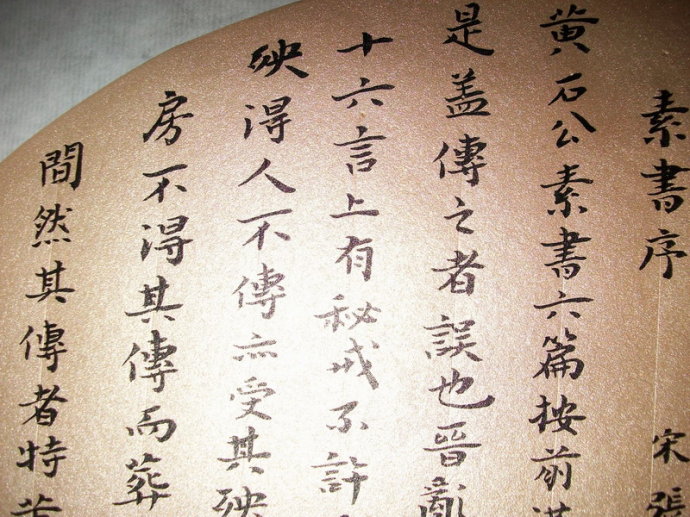 素書序 宋張
黄石公素書六篇按前漢
是盖傳之者誤也晉亂
十六言上有秘戒不許
殃得人不傳亦受其殃
房不得其傳而葬
間然其傳者特黄